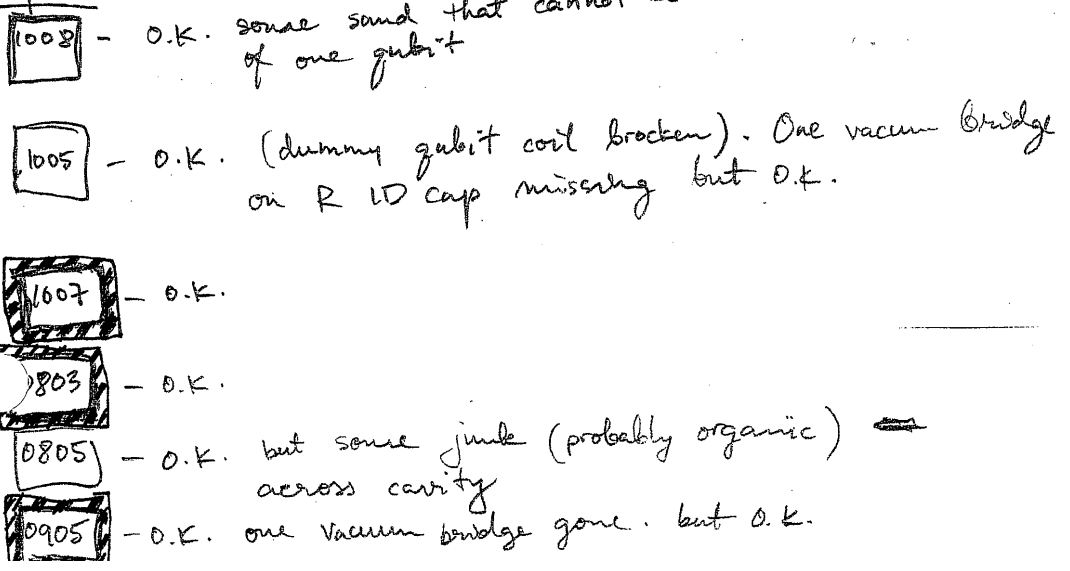 1008 - O.K. some sand that cannot
of one qubit
1005 - O.K. (dummy qubit coil brocken). One vacuum bridge
on R ID cap missing but O.K.
1007 - O.K.
0803 - O.K.
0805 - O.K. but some junk (probably organic)
across cavity
0905 - O.K. one vacuum bridge gone. but O.K.